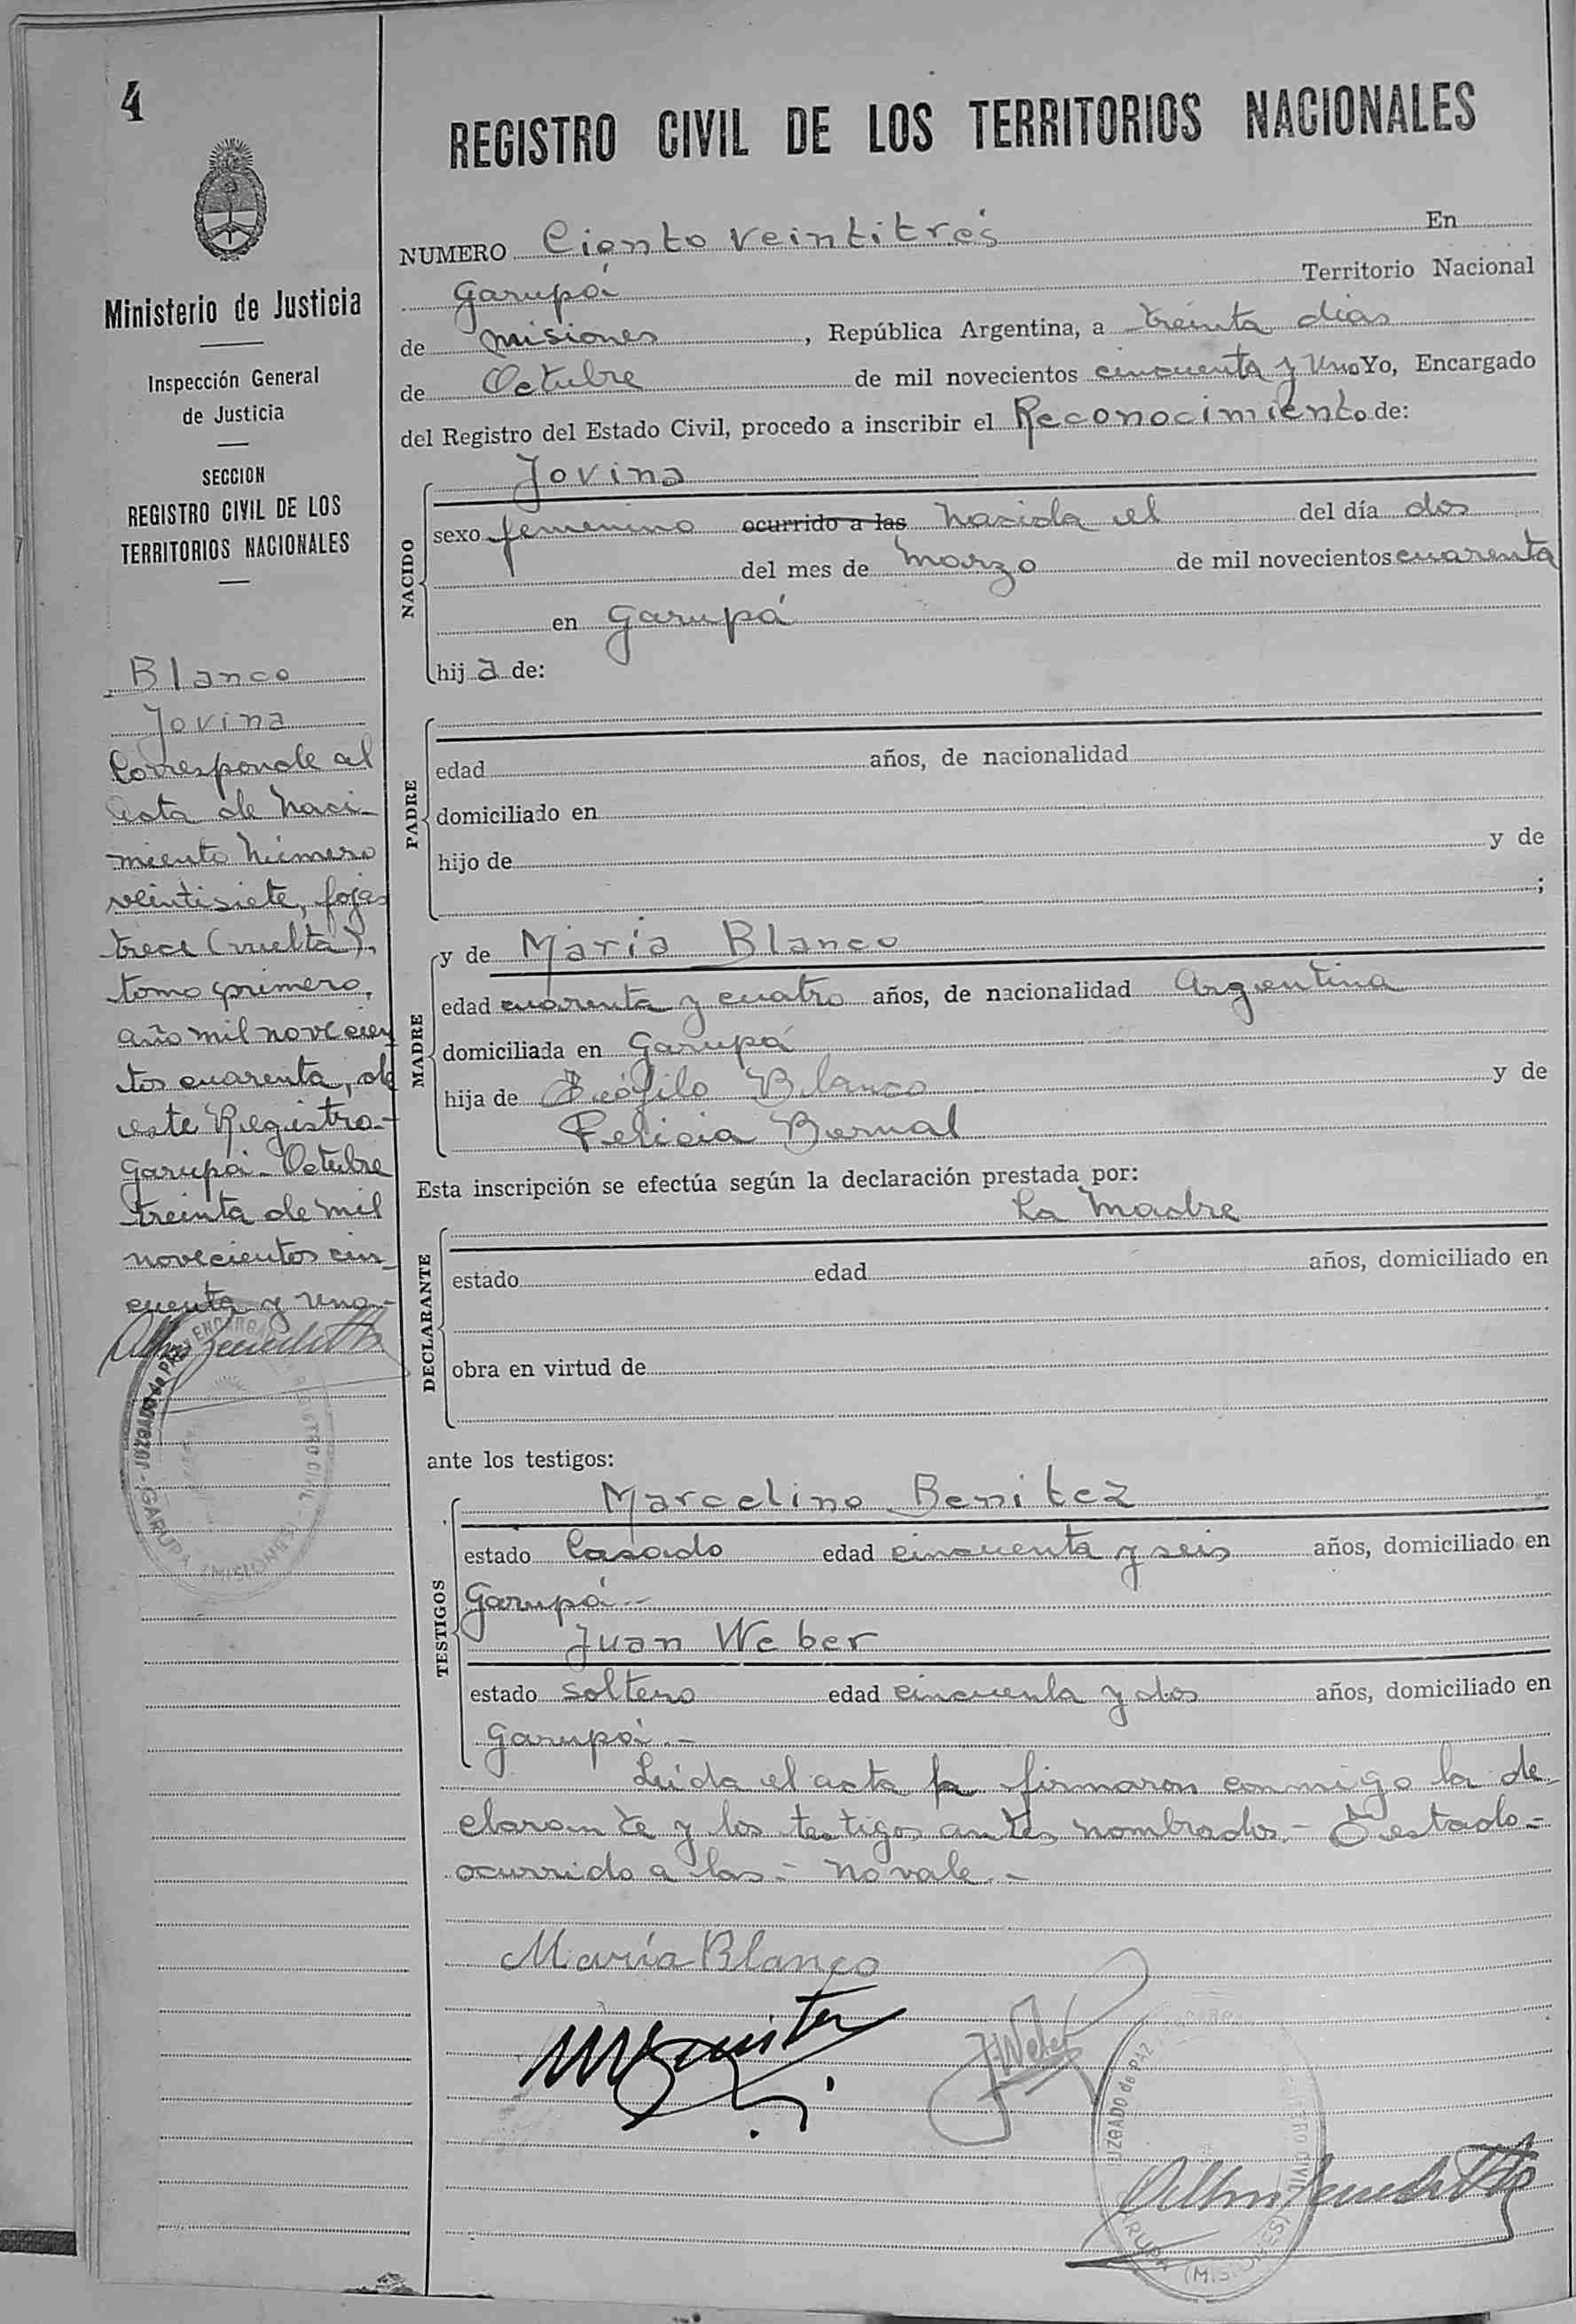 4
REGISTRO CIVIL DE LOS TERRITORIOS NACIONALES
Ministerio de Justicia
Inspección General
de Justicia
SECCION
REGISTRO CIVIL DE LOS
TERRITORIOS NACIONALES
Blanco
Jovina
Corresponde al
Acta de Naci-
miento Número
veintisiete, fojas
trece (vuelta),
tomo primero,
año mil novecien
tos cuarenta, de
este Registro.-
Garupá- Octubre
treinta de mil
novecientos cin_
cuenta y uno.-
JUZGADO de PAZ
ENCARGA
REGISTRO CIVIL
GARUPA (MISIONES)
NUMERO Ciento veintitrés En
Garupá Territorio Nacional
de Misiones, República Argentina, a treinta días
de Octubre de mil novecientos cincuenta y Uno Yo, Encargado
del Registro del Estado Civil, procedo a inscribir el Reconocimiento de:
NACIDO
Jovina
sexo femenino ocurrido a las nacida el del día dos
del mes de Marzo de mil novecientos cuarenta
en Garupá
hija de:
PADRE
edad años, de nacionalidad
domiciliado en
hijo de y de
;
MADRE
y de María Blanco
edad cuarenta y cuatro años, de nacionalidad Argentina
domiciliada en Garupá
hija de Teófilo Blanco y de
Felicia Bernal
Esta inscripción se efectúa según la declaración prestada por:
La Madre
DECLARANTE
estado edad años, domiciliado en
obra en virtud de
ante los testigos:
TESTIGOS
Marcelino Benitez
estado Casado edad cincuenta y seis años, domiciliado en
Garupá.-
Juan Weber
estado soltero edad cincuenta y dos años, domiciliado en
Garupá.-
Leída el acta la firmaron conmigo la de_
clarante y los testigos antes nombrados.- testado-
ocurrido a las- no vale.-
María Blanco
J Weber
JUZGADO de PAZ
REGISTRO CIVIL
GARUPA (MISIONES)